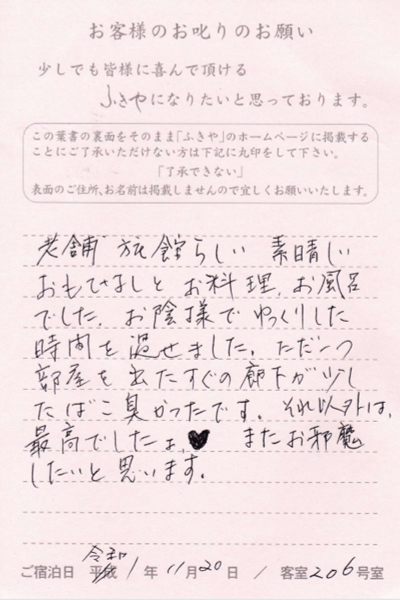 お客様のお叱りのお願い
少しでも皆様に喜んで頂ける
ふきやになりたいと思っております。
この葉書の裏面をそのまま「ふきや」のホームページに掲載する
ことにご了承いただけない方は下記に丸印をして下さい。
「了承できない」
表面のご住所、お名前は掲載しませんので宜しくお願いいたします。
老舗旅館らしい 素晴しい
おもてなしと お料理、お風呂
でした。お陰様で ゆっくりした
時間を過せました。ただ一つ
部屋を出たすぐの廊下が少し
たばこ臭かったです。それ以外は、
最高でしたょ。♥ またお邪魔
したいと思います。
令和
ご宿泊日 平成 1年 11月20日 / 客室206号室